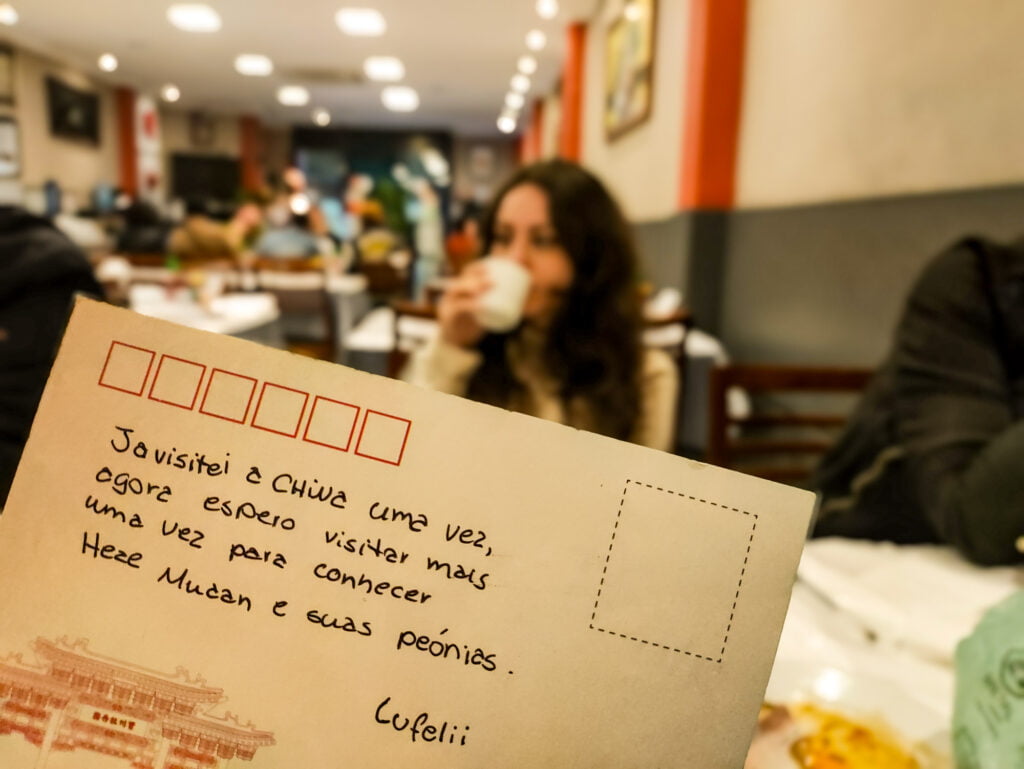 Ja visitei a CHINA uma vez,
agora espero visitar mais
uma vez para conhecer
Heze Mudan e suas peónias.
Lufelii